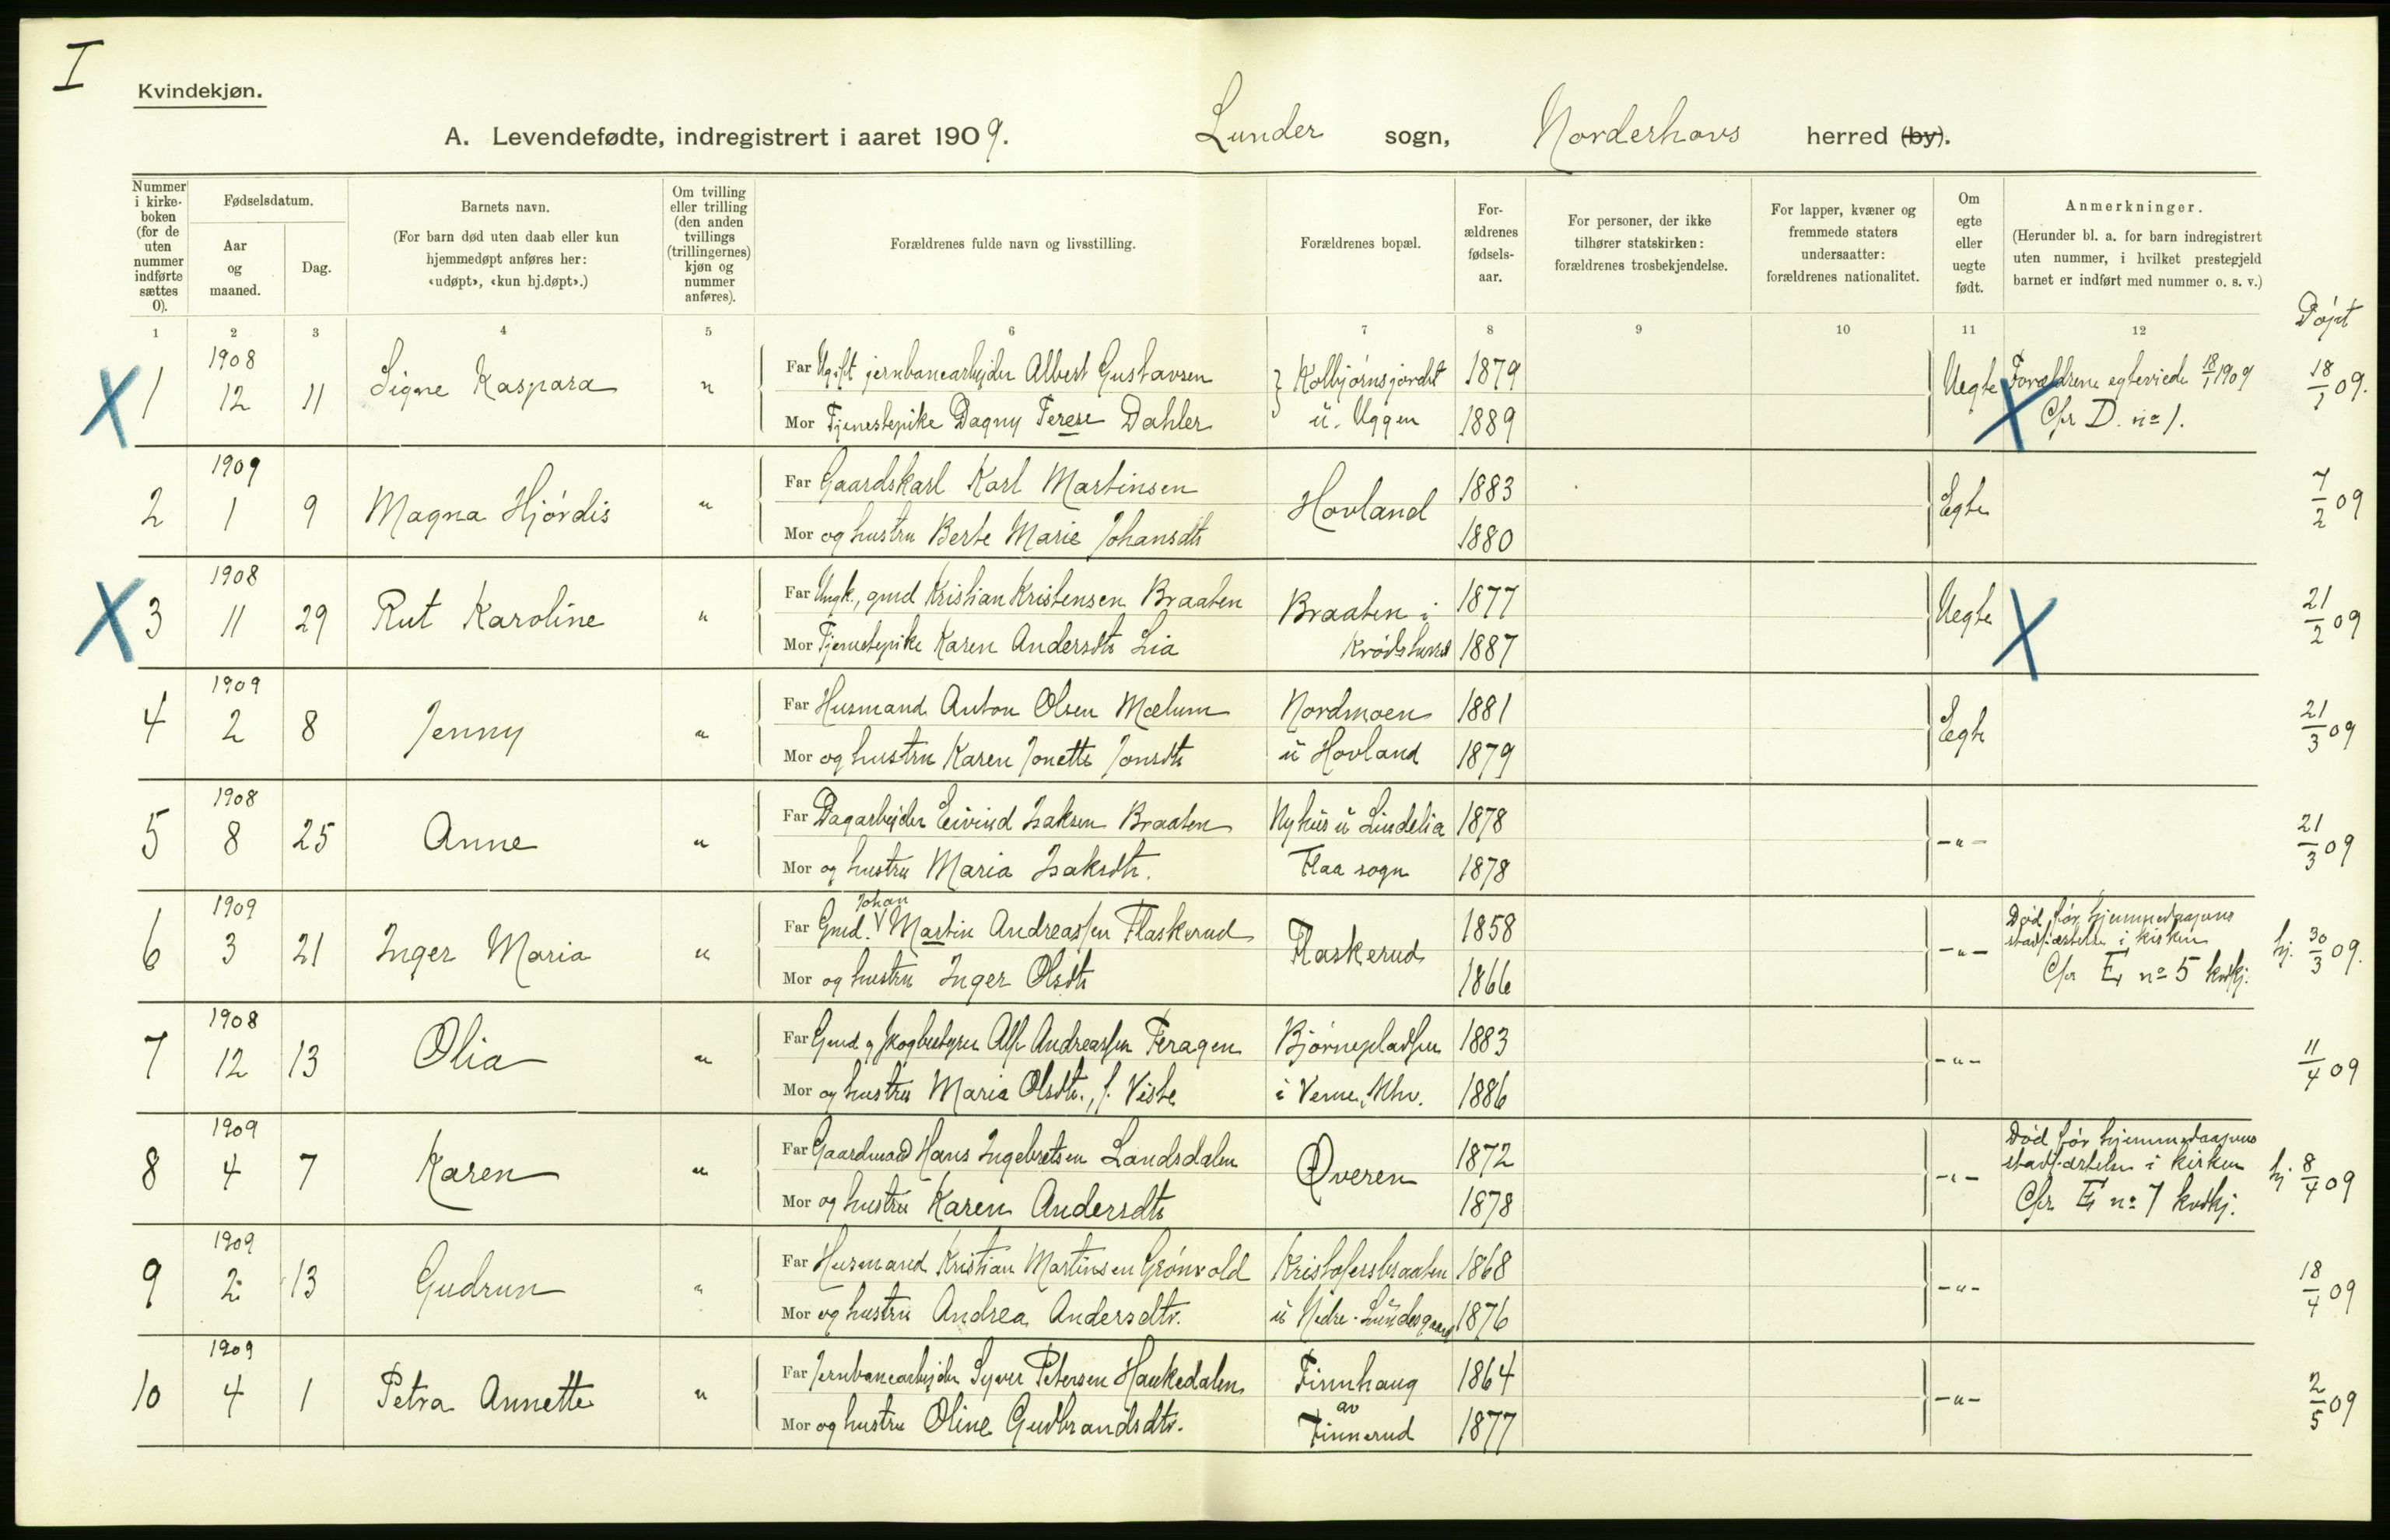 I
Kvindekjøn.
A. Levendefødte, indregistrert i aaret 1909. Lunder sogn, Norderhovs herred (by).
Nummer i kirke-boken (for de uten nummer indførte sættes 0).
Fødselsdatum.
Aar og maaned.
Dag.
Barnets navn.
(For barn død uten daab eller kun hjemmedøpt anføres her: «udøpt», «kun hj.døpt».)
Om tvilling eller trilling (den anden tvillings (trillingernes) kjøn og nummer anføres).
Forældrenes fulde navn og livsstilling.
Forældrenes bopæl.
For-ældrenes fødsels-aar.
For personer, der ikke tilhører statskirken: forældrenes trosbekjendelse.
For lapper, kvæner og fremmede staters undersaatter: forældrenes nationalitet.
Om egte eller uegte født.
Anmerkninger.
(Herunder bl. a. for barn indregistrert uten nummer, i hvilket prestegjeld barnet er indført med nummer o. s. v.)
Døpt
1 2 3 4 5 6 7 8 9 10 11 12
X 1 1908 12 11 Signe Kaspara " Far Ugift jernbanearbeider Albert Gustavsen Kolbjørnsjordet 1879 Uegte Forældrene egteviede 18/1 1909 18/1 09.
Mor Tjenestepike Dagny Terese Dahler u. Uggen 1889 X Cfr D. no 1.
2 1909 1 9 Magna Hjórdis " Far Gaardskarl Karl Martinsen Hovland 1883 Egte 7/2 09
Mor og hustru Berte Marie Johansdtr 1880
X 3 1908 11 29 Rut Karoline " Far Ungk., gmd Kristian Kristensen Braaten Braaten i 1877 Uegte X 21/2 09
Mor Tjenestepike Karen Andersdtr Lia Krødsherred 1887
4 1909 2 8 Jenny " Far Husmand Anton Olsen Mælum Nordmoen 1881 Egte 21/3 09
Mor og hustru Karen Jonette Jonsdtr u Hovland 1879
5 1908 8 25 Anne " Far Dagarbeider Eivind Isaksen Braaten Nyhus u Lindelia 1878 -"- 21/3 09
Mor og hustru Maria Isaksdtr. Flaa sogn 1878
6 1909 3 21 Inger Maria " Far Gmd. Johan Martin Andreassen Flaskerud Flaskerud 1858 -"- Død før hjemmedaapens stadfæstelse i kirken hj. 30/3 09.
Mor og hustru Inger Olsdtr 1866 Cfr E no 5 kvdkj.
7 1908 12 13 Olia " Far Gmd og skogbestyrer Alf Andreassen Feragen Bjørnepladsen 1883 -"- 11/4 09
Mor og hustru Maria Olsdtr., f. Viste i Verne, Nhv. 1886
8 1909 4 7 Karen " Far Gaardmand Hans Ingebretsen Landsdalen Øveren 1872 -"- Død før hjemmedaapens stadfæstelse i kirken hj 8/4 09
Mor og hustru Karen Andersdtr 1878 Cfr E no 7 kvdkj.
9 1909 2 13 Gudrun " Far Husmand Kristian Martinsen Grønvold Kristofersbraaten 1868 -"- 18/4 09
Mor og hustru Andrea Andersdtr. u Nedre Lundesgaard 1876
10 1909 4 1 Petra Annette " Far Jernbanearbeider Syver Petersen Haukedalen Finnhaug 1864 -"- 2/5 09
Mor og hustru Oline Gudbrandsdtr. av Finnerud 1877